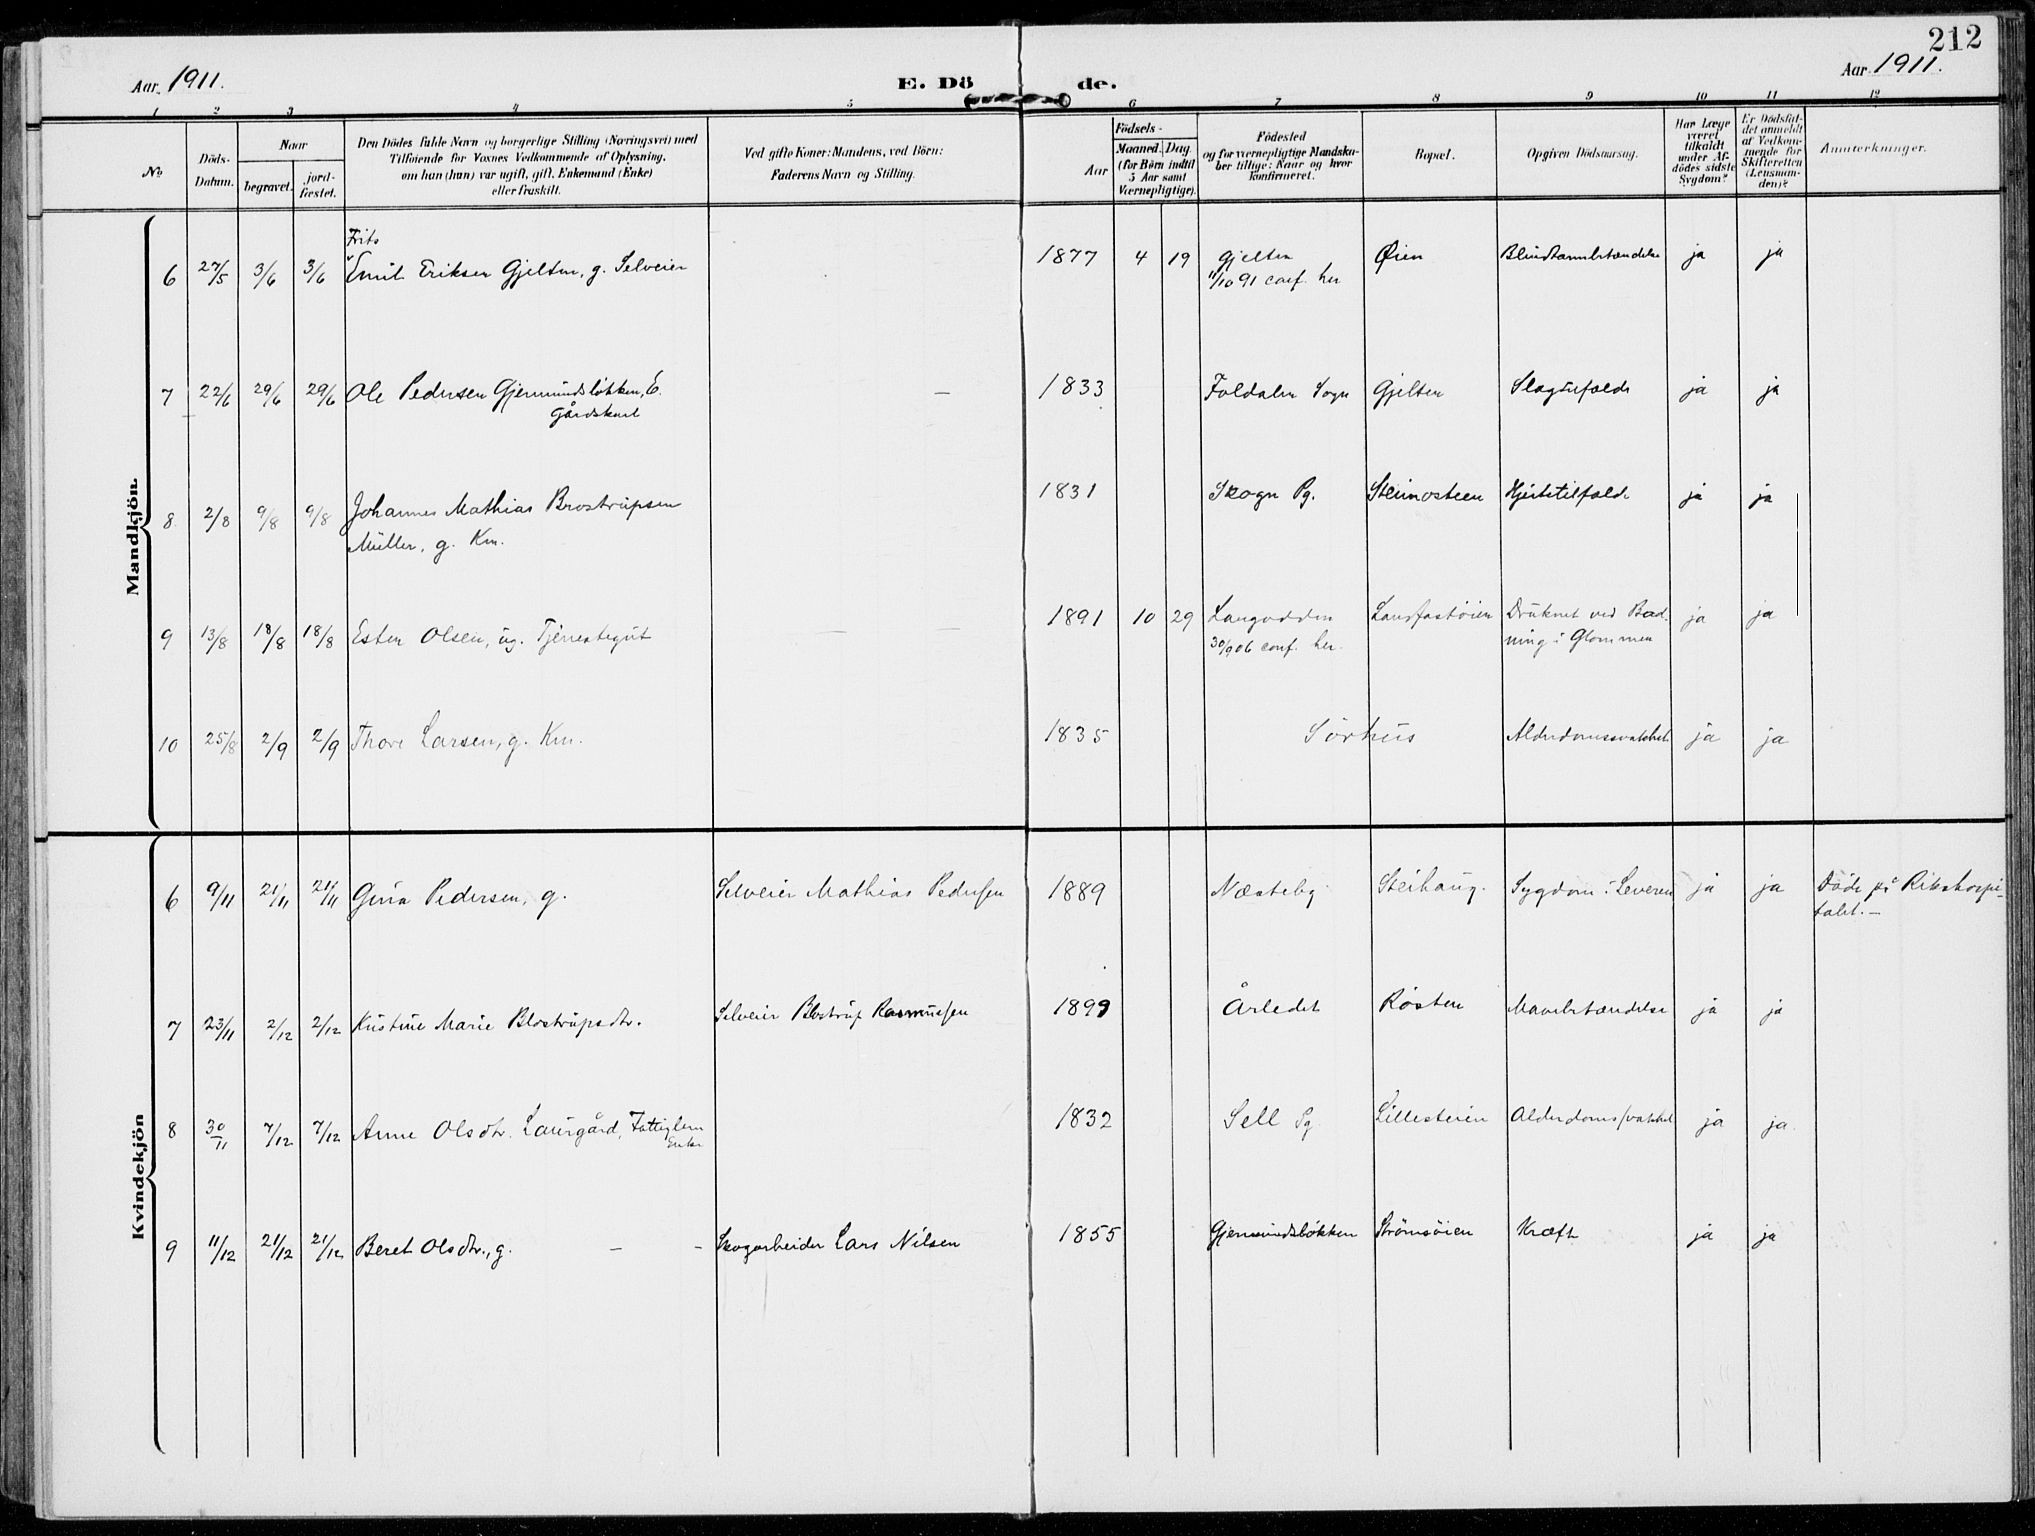 212
Aar 1911. E. Dö de. Aar 1911.
1 2 3 4 5 6 7 8 9 10 11 12
No
Döds-
Datum.
Naar
begravet.
jord-
fæstet.
Den Dödes fulde Navn og borgerlige Stilling (Næringsvei) med
Tilföiende for Voxnes Vedkommende af Oplysning,
om han (hun) var ugift, gift, Enkemand (Enke)
eller fraskilt.
Ved gifte Koner: Mandens, ved Börn:
Faderens Navn og Stilling.
Födsels-
Aar
Maaned. Dag.
(for Börn indtil
5 Aar samt
Værnepligtige).
Födested
og for værnepligtige Mandska-
ber tillige: Naar og hvor
konfirmeret.
Bopæl.
Opgiven Dödsaarsag.
Har Læge
været
tilkaldt
under Af-
dödes sidste
Sygdom?
Er Dödsfal-
det anmeldt
af Vedkom-
mende for
Skifteretten
(Lensman-
den)?
Anmærkninger.
Mandkjön.
Frits
6 27/5 3/6 3/6 Emil Eriksen Gjelten, g. Selveier 1877 4 19 Gjelten Øien Blindtarmbetændelse ja ja
11/10 91 conf. her
7 22/6 29/6 29/6 Ole Pedersen Gjermundsløkken, E. — 1833 Foldalen Sogn Gjelten Slagtilfælde ja ja
Gårdskarl
8 2/8 9/8 9/8 Johannes Mathias Brostrupsen 1831 Skogn Pg. Steimosteen Hjertetilfælde ja ja
Müller, g. Km.
9 13/8 18/8 18/8 Esten Olsen, ug. Tjenestegut — — 1891 10 29 Langodden Drüknet ved Bad- ja ja
30/9 06 conf. her. ning i Glommen
10 25/8 2/9 2/9 Thore Larsen, g. Km. 1835 Sörhüs Alderdomssvakhet ja ja
Kvindekjön
6 9/11 21/11 21/11 Gina Pedersen, g. Selveier Mathias Pedersen 1889 Næsteby Steihaug. Sygdom i Leveren ja ja Döde på Rikshospi-
talet. —
7 23/11 2/12 2/12 Kristine Marie Blostrupsdtr. Selveier Blostrup Rasmussen 1899 Årledet Røsten Mavebetændelse ja ja
8 30/11 7/12 7/12 Anne Olsdtr. Laurgård, Fattiglem 1832 Sell Sg. Lillesteien Alderdomssvakhet ja ja.
Enke
9 11/12 21/12 21/12 Beret Olsdtr., g. — - Skogarbeider Lars Nilsen 1855 Gjermundsløkken Strömsöien Kræft ja ja